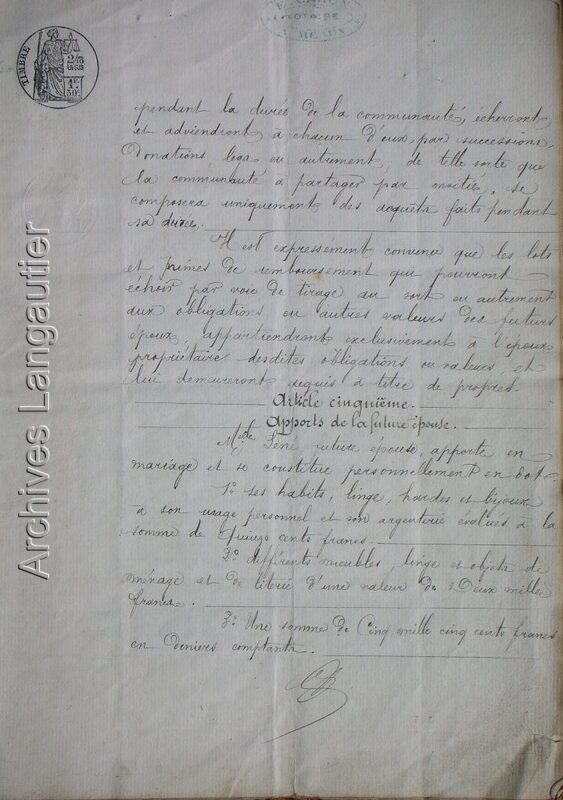 NOTAIRE
MEAUX
TIMBRE
2/10
EN SUS
1F
50c
pendant la durée de la communauté, écherront
et adviendront à chacun d'eux, par successions,
Donations, legs ou autrement, de telle sorte que
la communauté à partager par moitié, se
composera uniquement des acquêts faits pendant
sa durée.
Il est expressément convenu que les lots
et primes de remboursement qui pourront
échoir par voie de tirage au sort ou autrement
aux obligations ou autres valeurs des futurs
époux, appartiendront exclusivement à l'époux
propriétaire desdites obligations ou valeurs, et
lui demeureront acquis à titre de propres.
Article cinquième.
Apports de la future épouse.
Melle Séné, future épouse, apporte en
mariage et se constitue personnellement en dot.
1º ses habits, linge, hardes et bijoux
à son usage personnel et son argenterie évalués à la
somme de Quinze cents francs.
2º différents meubles, linge et objets de
ménage et de literie d'une valeur de Deux mille
francs.
3º Une somme de Cinq mille cinq cents francs
en deniers comptants.
Archives Langautier